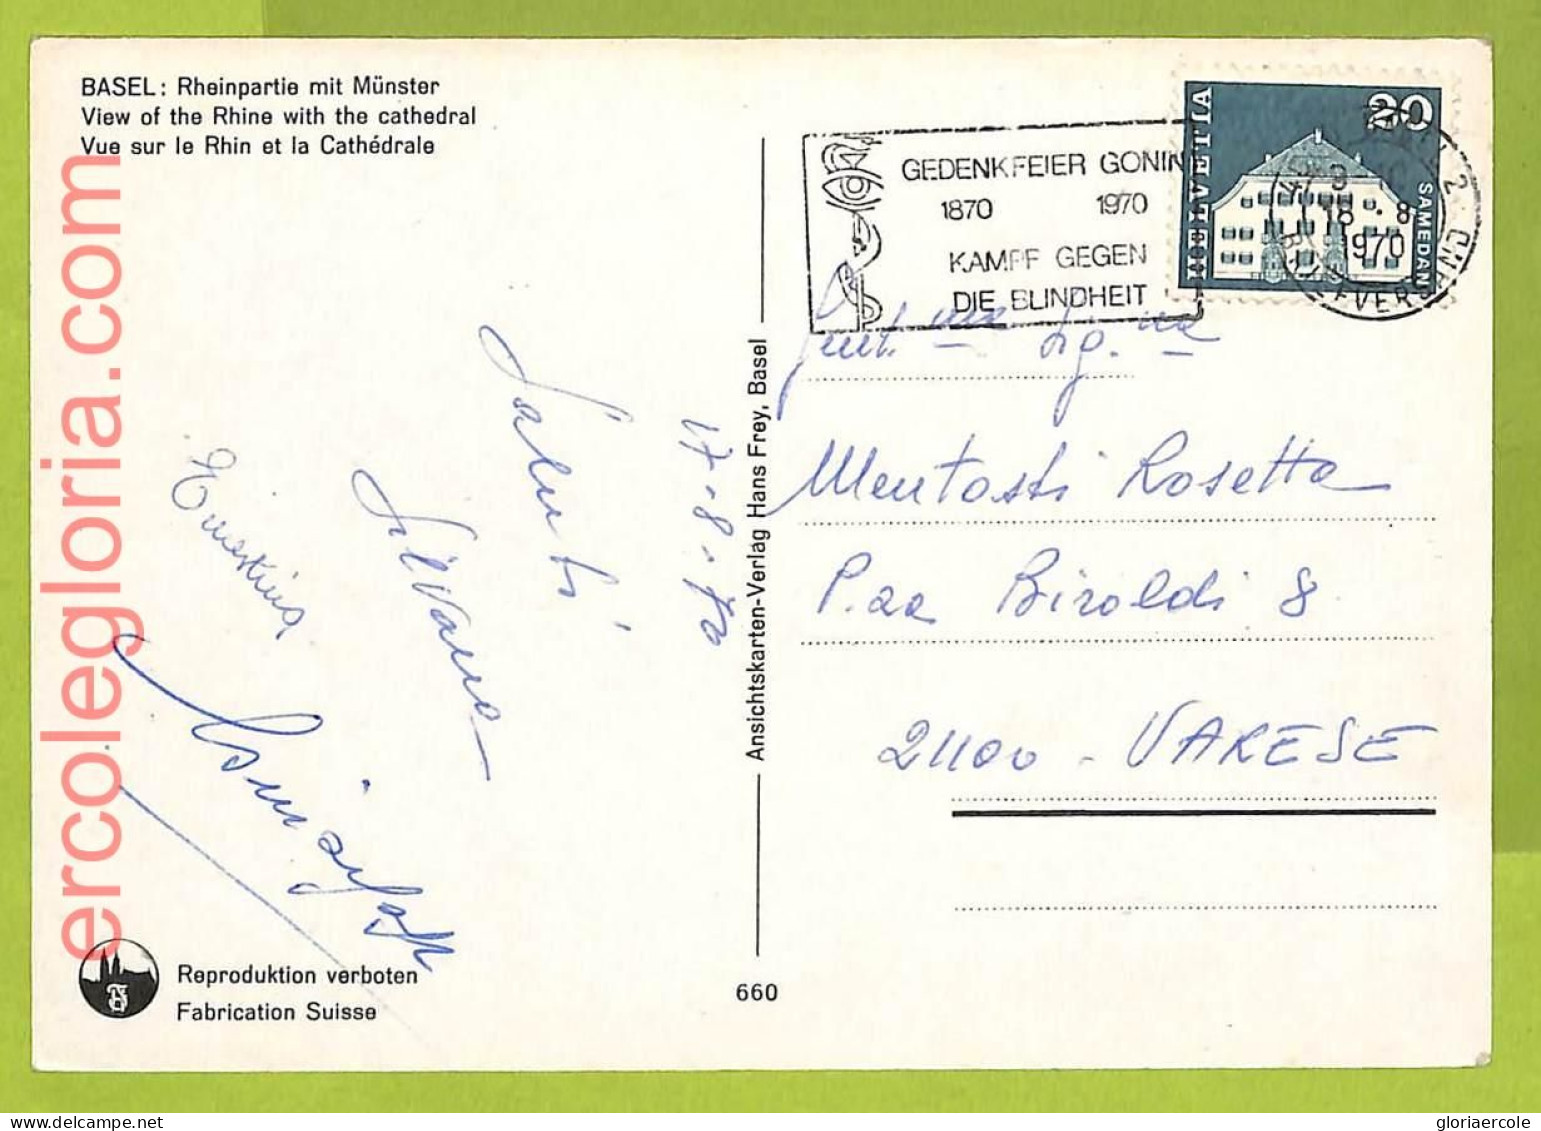 BASEL: Rheinpartie mit Münster
View of the Rhine with the cathedral
Vue sur le Rhin et la Cathédrale
GEDENKFEIER GONIN
1870 1970
KAMPF GEGEN
DIE BLINDHEIT
HELVETIA
20
SAMEDAN
18.8
1970
BRIEFVERS
Gent.ma Sig.na
Mentasti Rosetta
P.za Biroldi 8
21100 - VARESE
17-8-70
Saluti
Silvana
Ernestina
Ansichtskarten-Verlag Hans Frey, Basel
660
Reproduktion verboten
Fabrication Suisse
ercolegloria.com
delcampe.net
gloriaercole